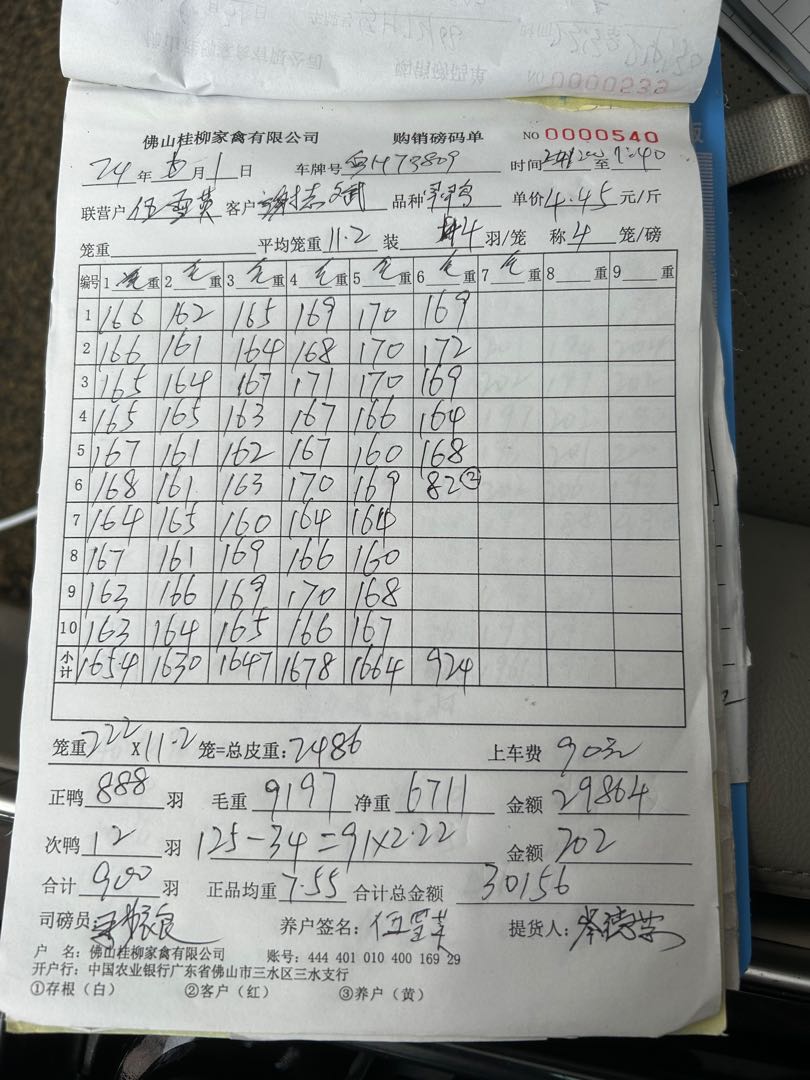 NO 0000233
佛山桂柳家禽有限公司 购销磅码单 NO 0000540
24 年 6 月 1 日 车牌号 粤H73809 时间 至 1:40
联营户 客户 谢志斌 品种 单价 4.45 元/斤
笼重 平均笼重 11.2 装 4 羽/笼 称 4 笼/磅
编号 1 毛 重 2 毛 重 3 毛 重 4 毛 重 5 毛 重 6 毛 重 7 毛 重 8 重 9 重
1 166 162 165 169 170 169
2 166 161 164 168 170 172
3 165 164 167 171 170 169
4 165 165 163 167 166 164
5 167 161 162 167 160 168
6 168 161 163 170 169 82②
7 164 165 160 164 164
8 167 161 169 166 160
9 163 166 169 170 168
10 163 164 165 166 167
小计 1654 1630 1647 1678 1664 924
笼重 222 X 11.2 笼=总皮重: 2486 上车费 90元
正鸭 888 羽 毛重 9197 净重 6711 金额 29864
次鸭 12 羽 125-34=91×2.22 金额 202
合计 900 羽 正品均重 7.55 合计总金额 30156
司磅员: 养户签名: 提货人:
户 名: 佛山桂柳家禽有限公司 账号: 444 401 010 400 169 29
开户行: 中国农业银行广东省佛山市三水区三水支行
①存根（白） ②客户（红） ③养户（黄）